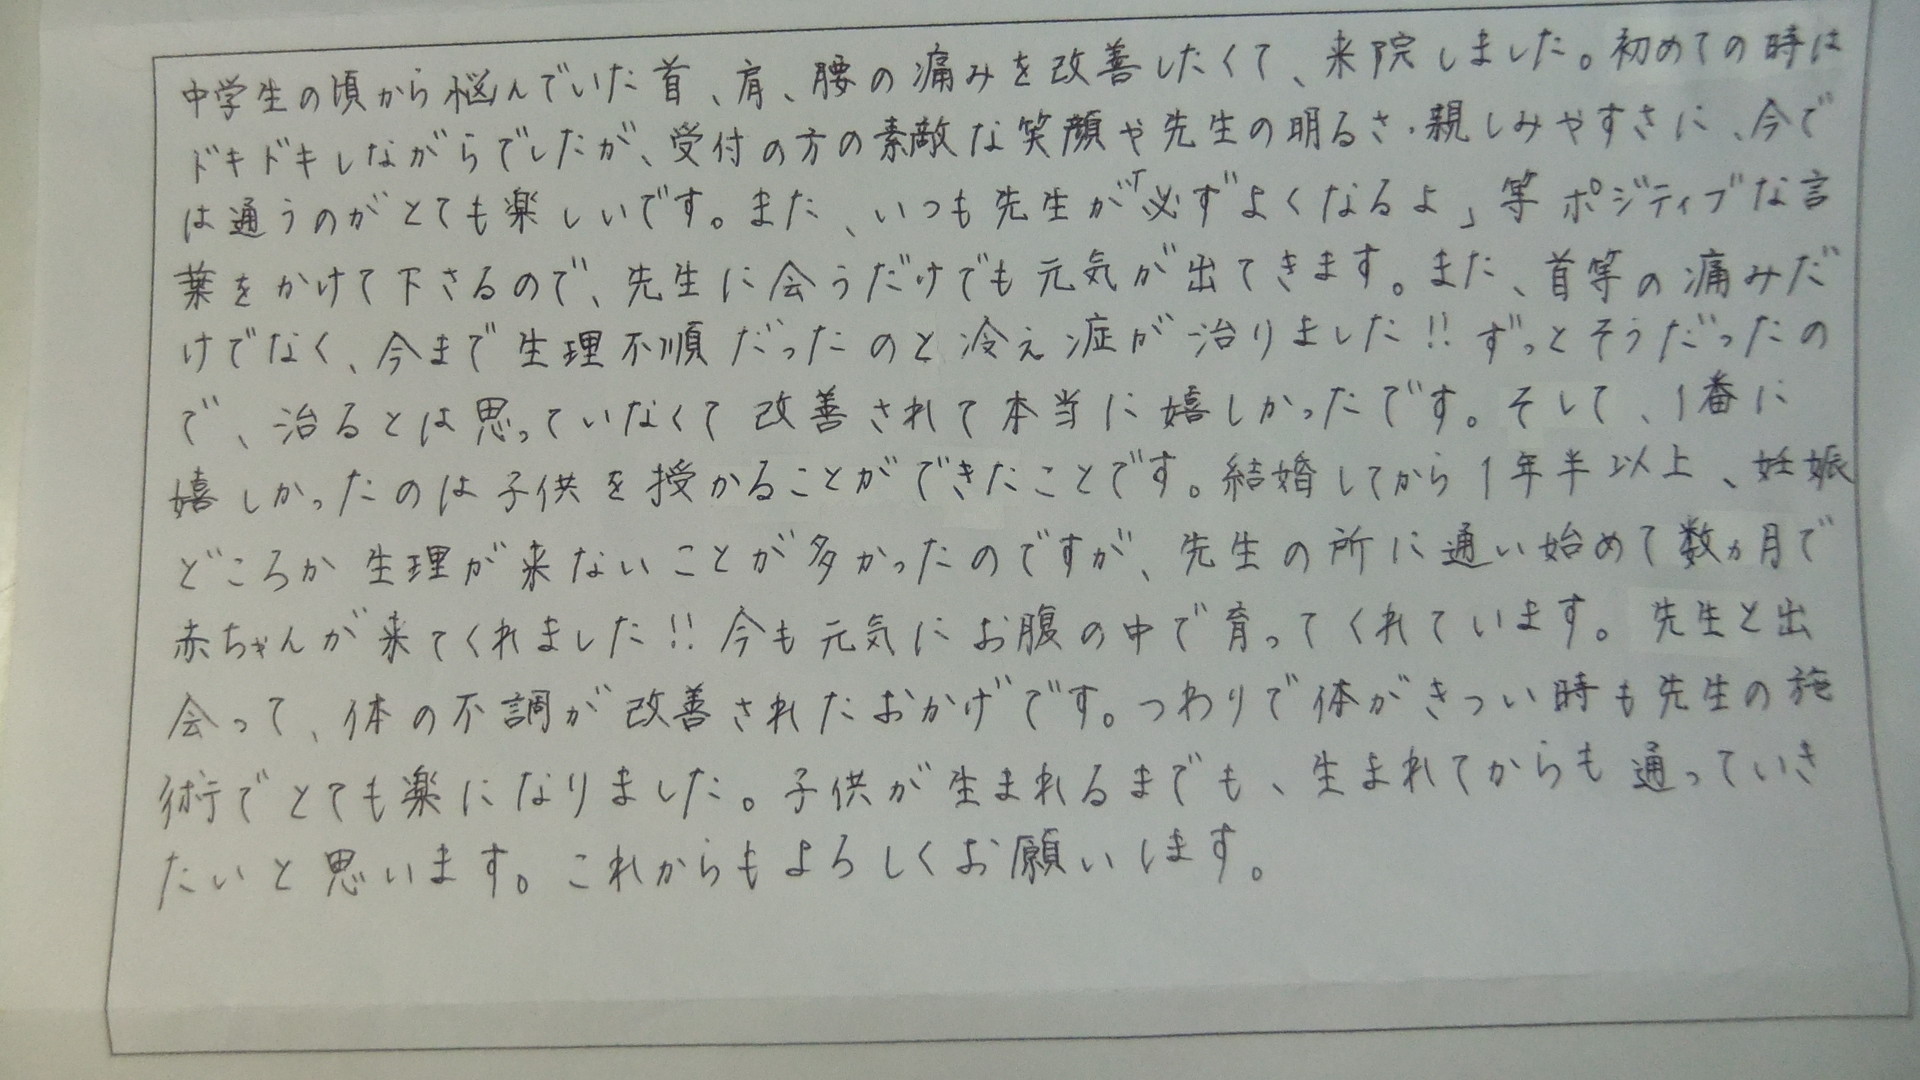 中学生の頃から悩んでいた首、肩、腰の痛みを改善したくて、来院しました。初めての時は
ドキドキしながらでしたが、受付の方の素敵な笑顔や先生の明るさ・親しみやすさに、今で
は通うのがとても楽しいです。また、いつも先生が「必ずよくなるよ」等ポジティブな言
葉をかけて下さるので、先生に会うだけでも元気が出てきます。また、首等の痛みだ
けでなく、今まで生理不順だったのと冷え症が治りました!!ずっとそうだったの
で、治るとは思っていなくて改善されて本当に嬉しかったです。そして、1番に
嬉しかったのは子供を授かることができたことです。結婚してから1年半以上、妊娠
どころか生理が来ないことが多かったのですが、先生の所に通い始めて数ヵ月で
赤ちゃんが来てくれました!!今も元気にお腹の中で育ってくれています。先生と出
会って、体の不調が改善されたおかげです。つわりで体がきつい時も先生の施
術でとても楽になりました。子供が生まれるまでも、生まれてからも通っていき
たいと思います。これからもよろしくお願いします。